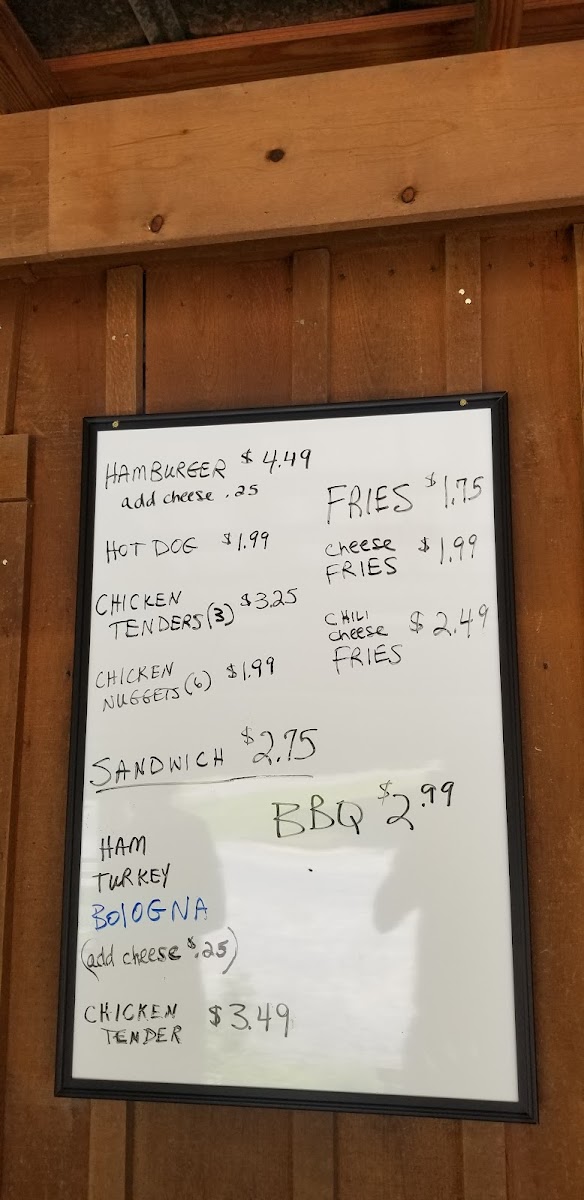 HAMBURGER $4.49
add cheese .25
HOT DOG $1.99
CHICKEN
TENDERS (3) $3.25
CHICKEN
NUGGETS (6) $1.99
FRIES $1.75
cheese
FRIES $1.99
CHILI
cheese
FRIES $2.49
SANDWICH $2.75
BBQ $2.99
HAM
TURKEY
BOlOGNA
(add cheese $.25)
CHICKEN
TENDER $3.49